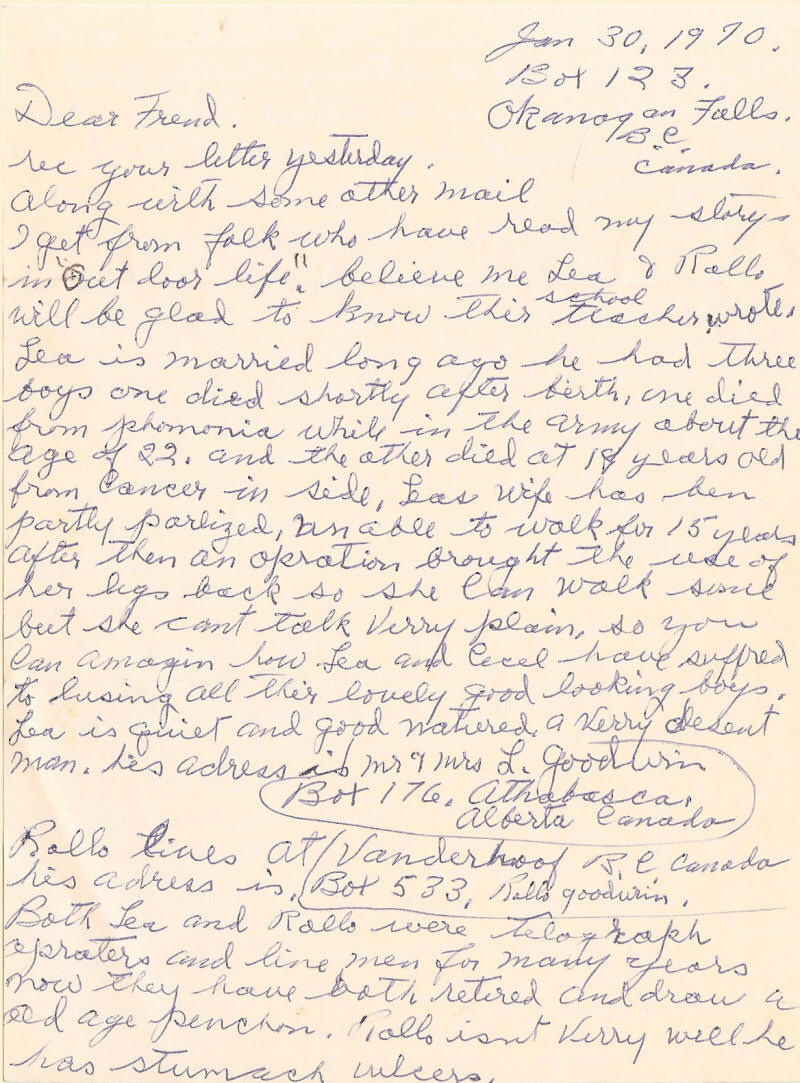 Jan 30, 1970.
Box 123.
Dear Frend.
Okanogan Falls.
B.C.
Canada.
rec your letter yesterday.
along with some other mail
I get from folk who have read my storys
in "Out door life". believe me Lea & Rollo
will be glad to know their school teacher wrote.
Lea is married long ago he had three
boys one died shortly after birth, one died
from phomonia while in the army about the
age of 22. and the other died at 18 years old
from Cancer in side, Leas wife has ben
partly parlized, unable to walk for 15 years
after then an opration brought the use of
her legs back so she Can walk some
but she cant talk Verry plain, so you
Can amagin how Lea and Cecel have suffred
to lusing all thir lovely good looking boys.
Lea is quiet and good natured, a Verry desent
man. his adress is mr & mrs L. Goodwin
Box 176. Athabasca,
Alberta Canada
Rollo lives at Vanderhoof B.C Canada
his adress is, Box 533, Rollo goodwin.
Both Lea and Rollo were telograph
opraters and line men for many years
now they have both retired and draw a
old age penchon. Rollo isnt Verry well he
has stumach ulcers.